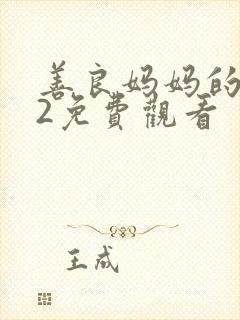 善良妈妈的
2免費觀看
王成